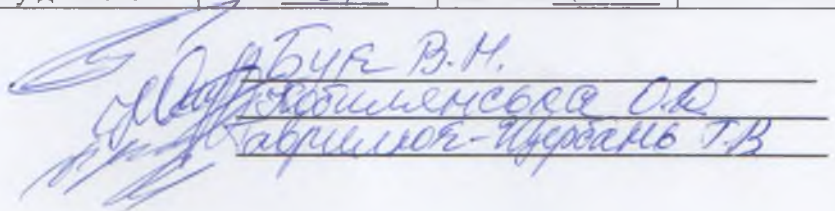 Бук В.М.
Кобилянська О.О
Гаврилюк-Щерсань Т.В